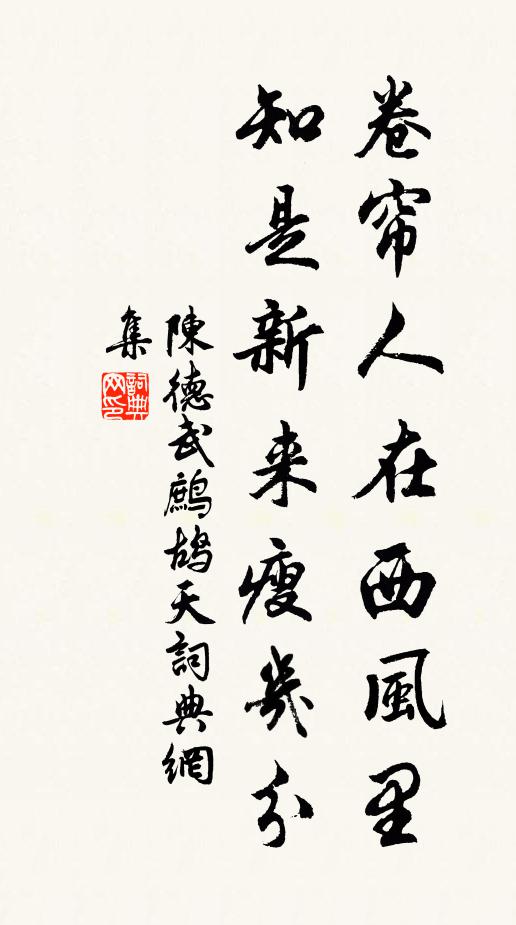 卷帘人在西風里
知是新来瘦幾分
陳德武鷓鴣天詞典網
集
詞典
网印